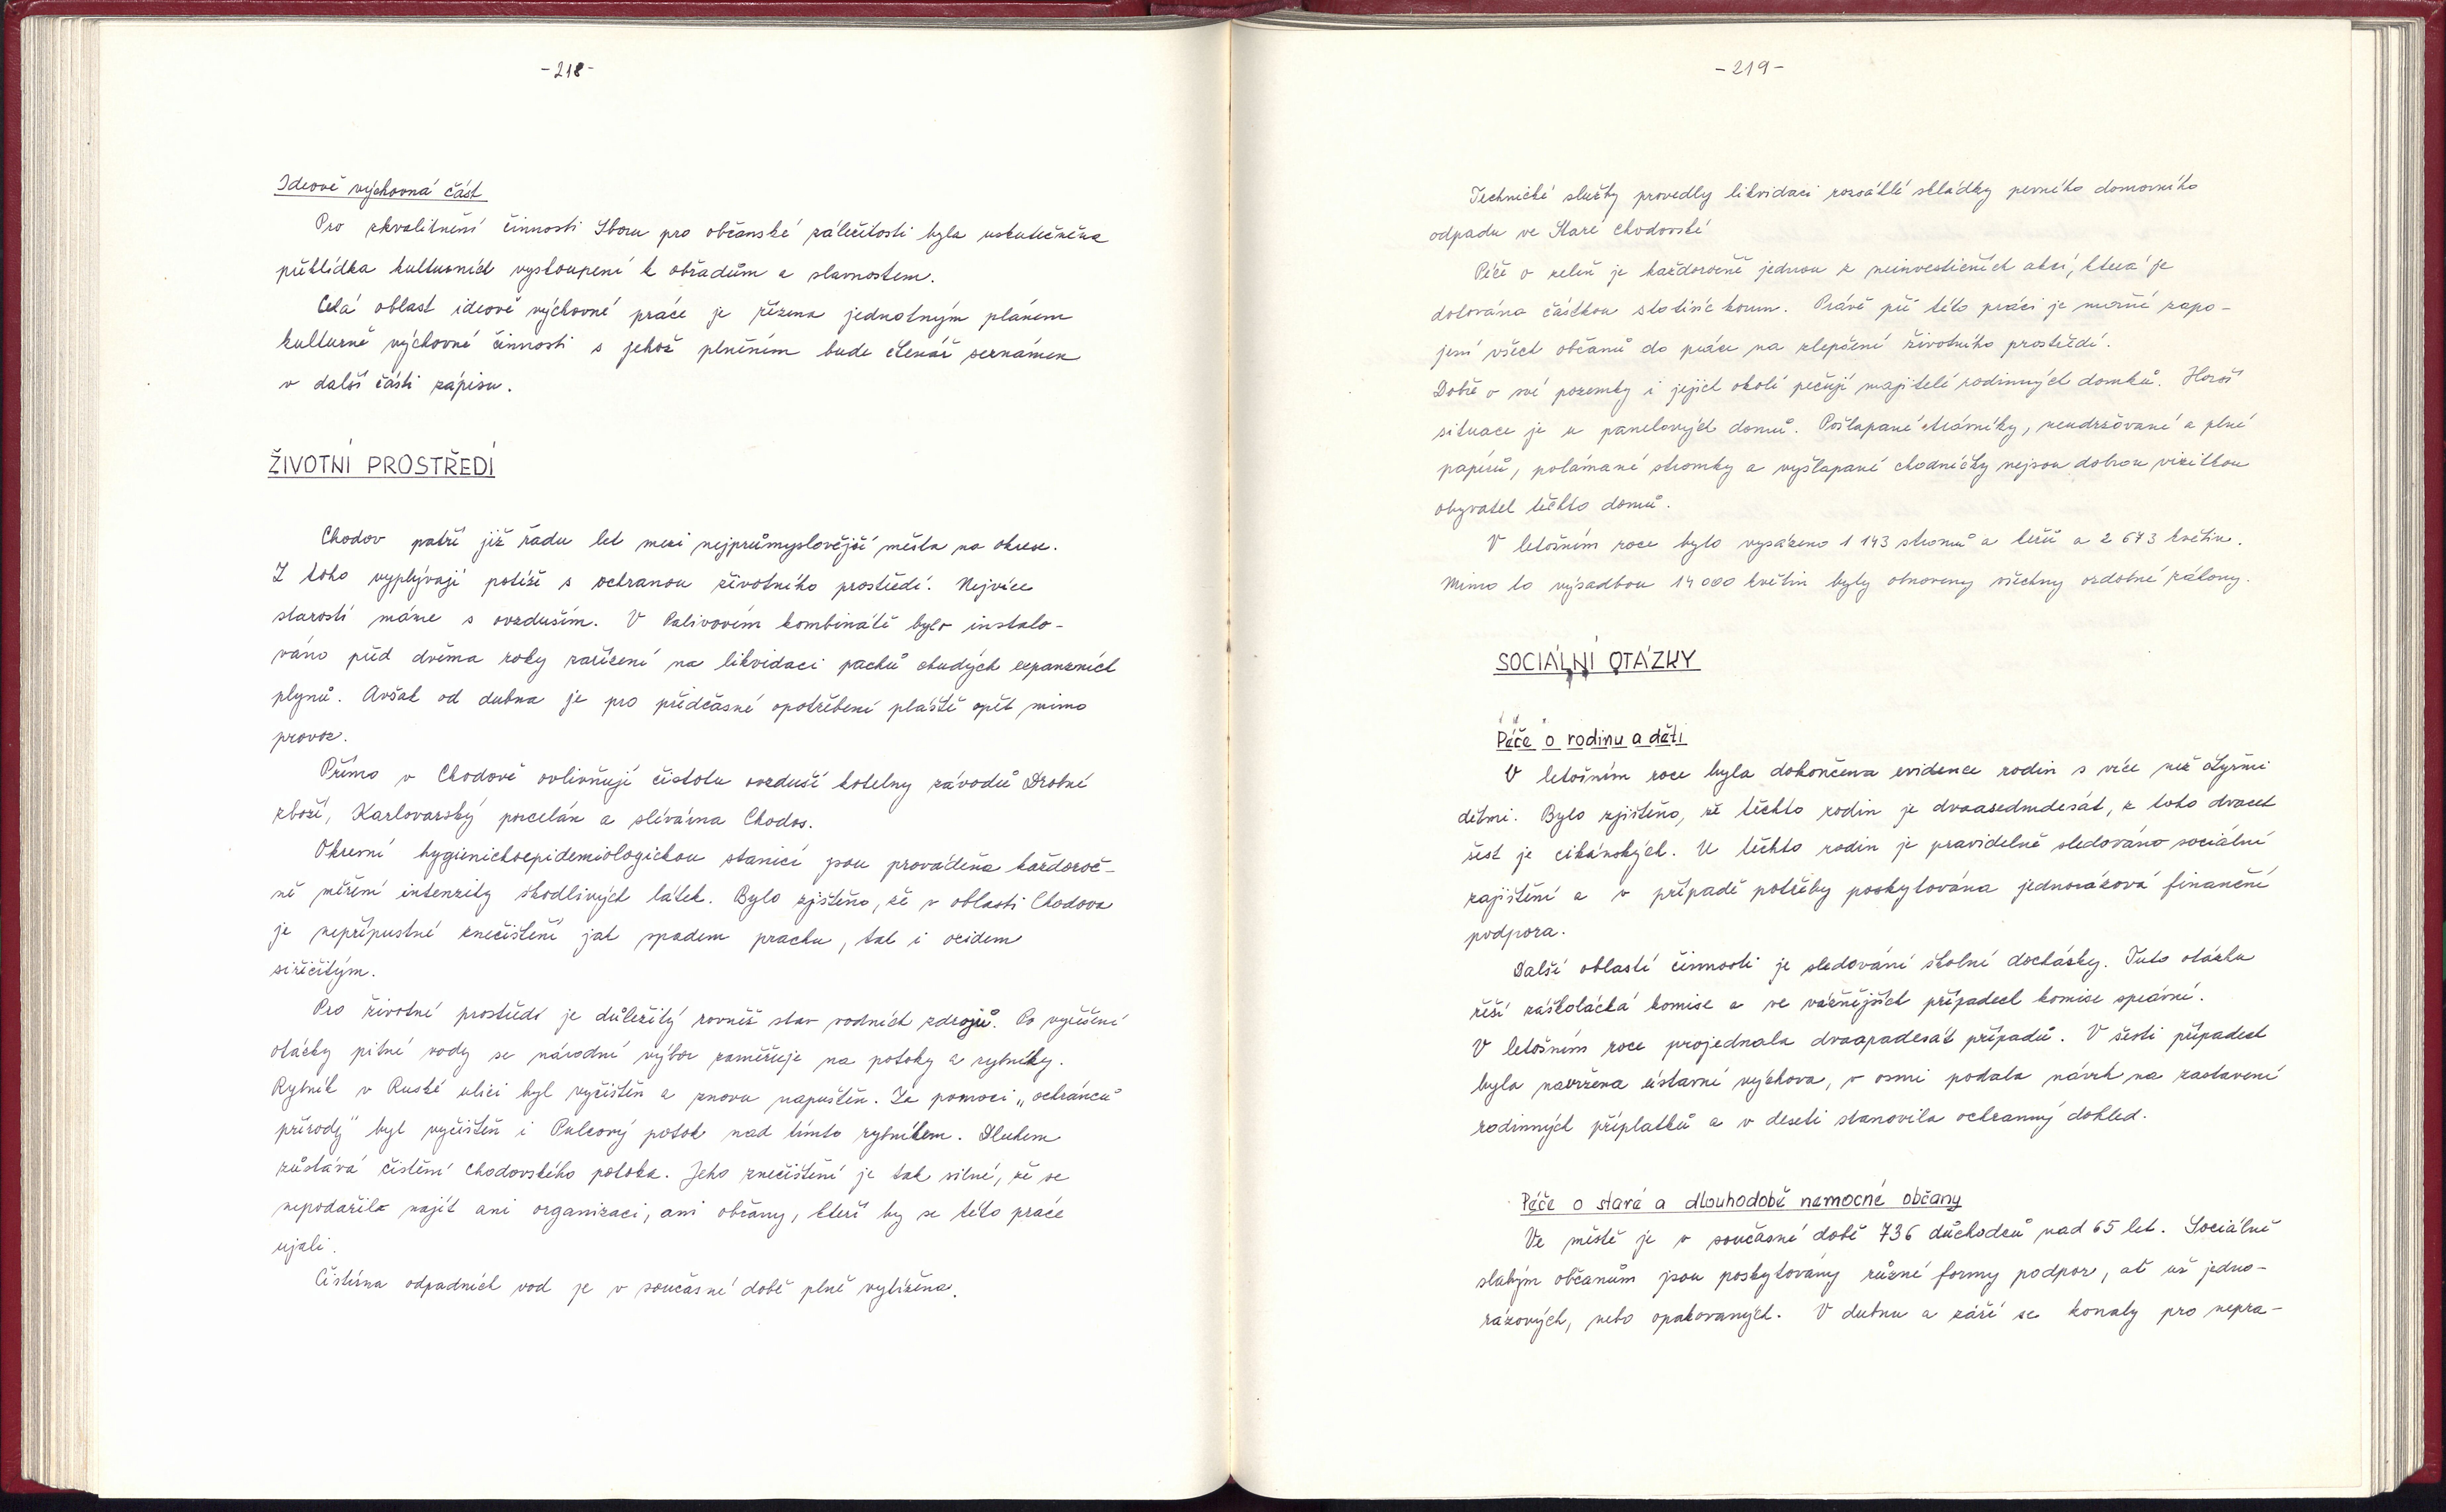 -218-
Ideově výchovná část
Pro zkvalitnění činnosti Sboru pro občanské záležitosti byla uskutečněna
přehlídka kulturních vystoupení k obřadům a slavnostem.
Celá oblast ideově výchovné práce je řízena jednotným plánem
kulturně výchovné činnosti s jehož plněním bude čtenář seznámen
v další části zápisu.
ŽIVOTNÍ PROSTŘEDÍ
Chodov patří již řadu let mezi nejprůmyslovější města na okrese.
Z toho vyplývají potíže s ochranou životního prostředí. Nejvíce
starostí máme s ovzduším. V Palivovém kombinátě bylo instalo-
váno před dvěma roky zařízení na likvidaci pachů chudých expanzních
plynů. Avšak od dubna je pro předčasné opotřebení pláště opět mimo
provoz.
Přímo v Chodově ovlivňují čistotu ovzduší kotelny závodů Drobné
zboží, Karlovarský porcelán a slévárna Chodos.
Okresní hygienickoepidemiologickou stanicí jsou prováděna každoroč-
ně měření intenzity škodlivých látek. Bylo zjištěno, že v oblasti Chodova
je nepřípustné znečištění jak spadem prachu, tak i oxidem
siřičitým.
Pro životné prostředí je důležitý rovněž stav vodních zdrojů. Po vyřešení
otázky pitné vody se národní výbor zaměřuje na potoky a rybníky.
Rybník v Ruské ulici byl vyčištěn a znovu napuštěn. Za pomoci „ochránců
přírody" byl vyčištěn i Pulcový potok nad tímto rybníkem. Dluhem
zůstává čistění Chodovského potoka. Jeho znečištění je tak silné, že se
nepodařilo najít ani organizaci, ani občany, kteří by se této práce
ujali.
Čistírna odpadních vod je v současné době plně vytížena.
-219-
Technické služby provedly likvidaci rozsáhlé skládky pevného domovního
odpadu ve Staré Chodovské
Péče o zeleň je každoročně jednou z neinvestičních akcí, která je
dotována částkou stotisíc korun. Právě při této práci je možné zapo-
jení všech občanů do práce na zlepšení životního prostředí.
Dobře o své pozemky i jejich okolí pečují majitelé rodinných domků. Horší
situace je u panelových domů. Pošlapané trávníky, neudržované a plné
papírů, polámané stromky a vyšlapané chodníčky nejsou dobrou vizitkou
obyvatel těchto domů.
V letošním roce bylo vysázeno 1 143 stromů a keřů a 2 673 květin.
Mimo to výsadbou 14 000 květin byly obnoveny všechny ozdobné záhony.
SOCIÁLNÍ OTÁZKY
Péče o rodinu a děti
V letošním roce byla dokončena evidence rodin s více než čtyřmi
dětmi. Bylo zjištěno, že těchto rodin je dvaasedmdesát, z toho dvacet
šest je cikánských. U těchto rodin je pravidelně sledováno sociální
zajištění a v případě potřeby poskytována jednorázová finanční
podpora.
Další oblastí činnosti je sledování školní docházky. Tuto otázku
řeší záškolácká komise a ve vážnějších případech komise správní.
V letošním roce projednala dvaapadesát případů. V šesti případech
byla navržena ústavní výchova, v osmi podala návrh na zastavení
rodinných příplatků a v deseti stanovila ochranný dohled.
Péče o stará a dlouhodobě nemocné občany
Ve městě je v současné době 736 důchodců nad 65 let. Sociálně
slabým občanům jsou poskytovány různé formy podpor, ať už jedno-
rázových, nebo opakovaných. V dubnu a září se konaly pro nepra-